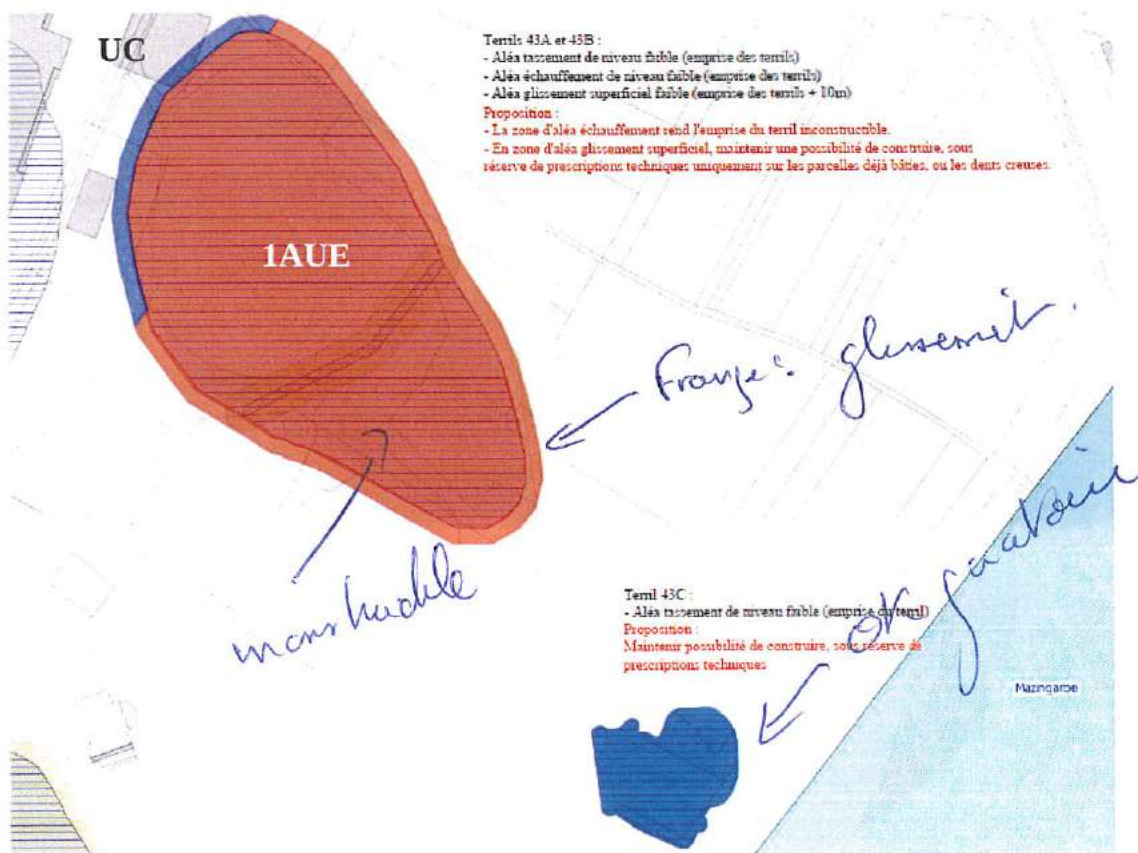 UC
Terrils 43A et 43B :
- Aléa tassement de niveau faible (emprise des terrils)
- Aléa échauffement de niveau faible (emprise des terrils)
- Aléa glissement superficiel faible (emprise des terrils + 10m)
Proposition :
- La zone d'aléa échauffement rend l'emprise du terril inconstructible.
- En zone d'aléa glissement superficiel, maintenir une possibilité de construire, sous
réserve de prescriptions techniques uniquement sur les parcelles déjà bâties, ou les dents creuses.
1AUE
Frange : glissement.
Terril 43C :
- Aléa tassement de niveau faible (emprise du terril)
Proposition :
Maintenir possibilité de construire, sous réserve de
prescriptions techniques
OK
Mazingarbe